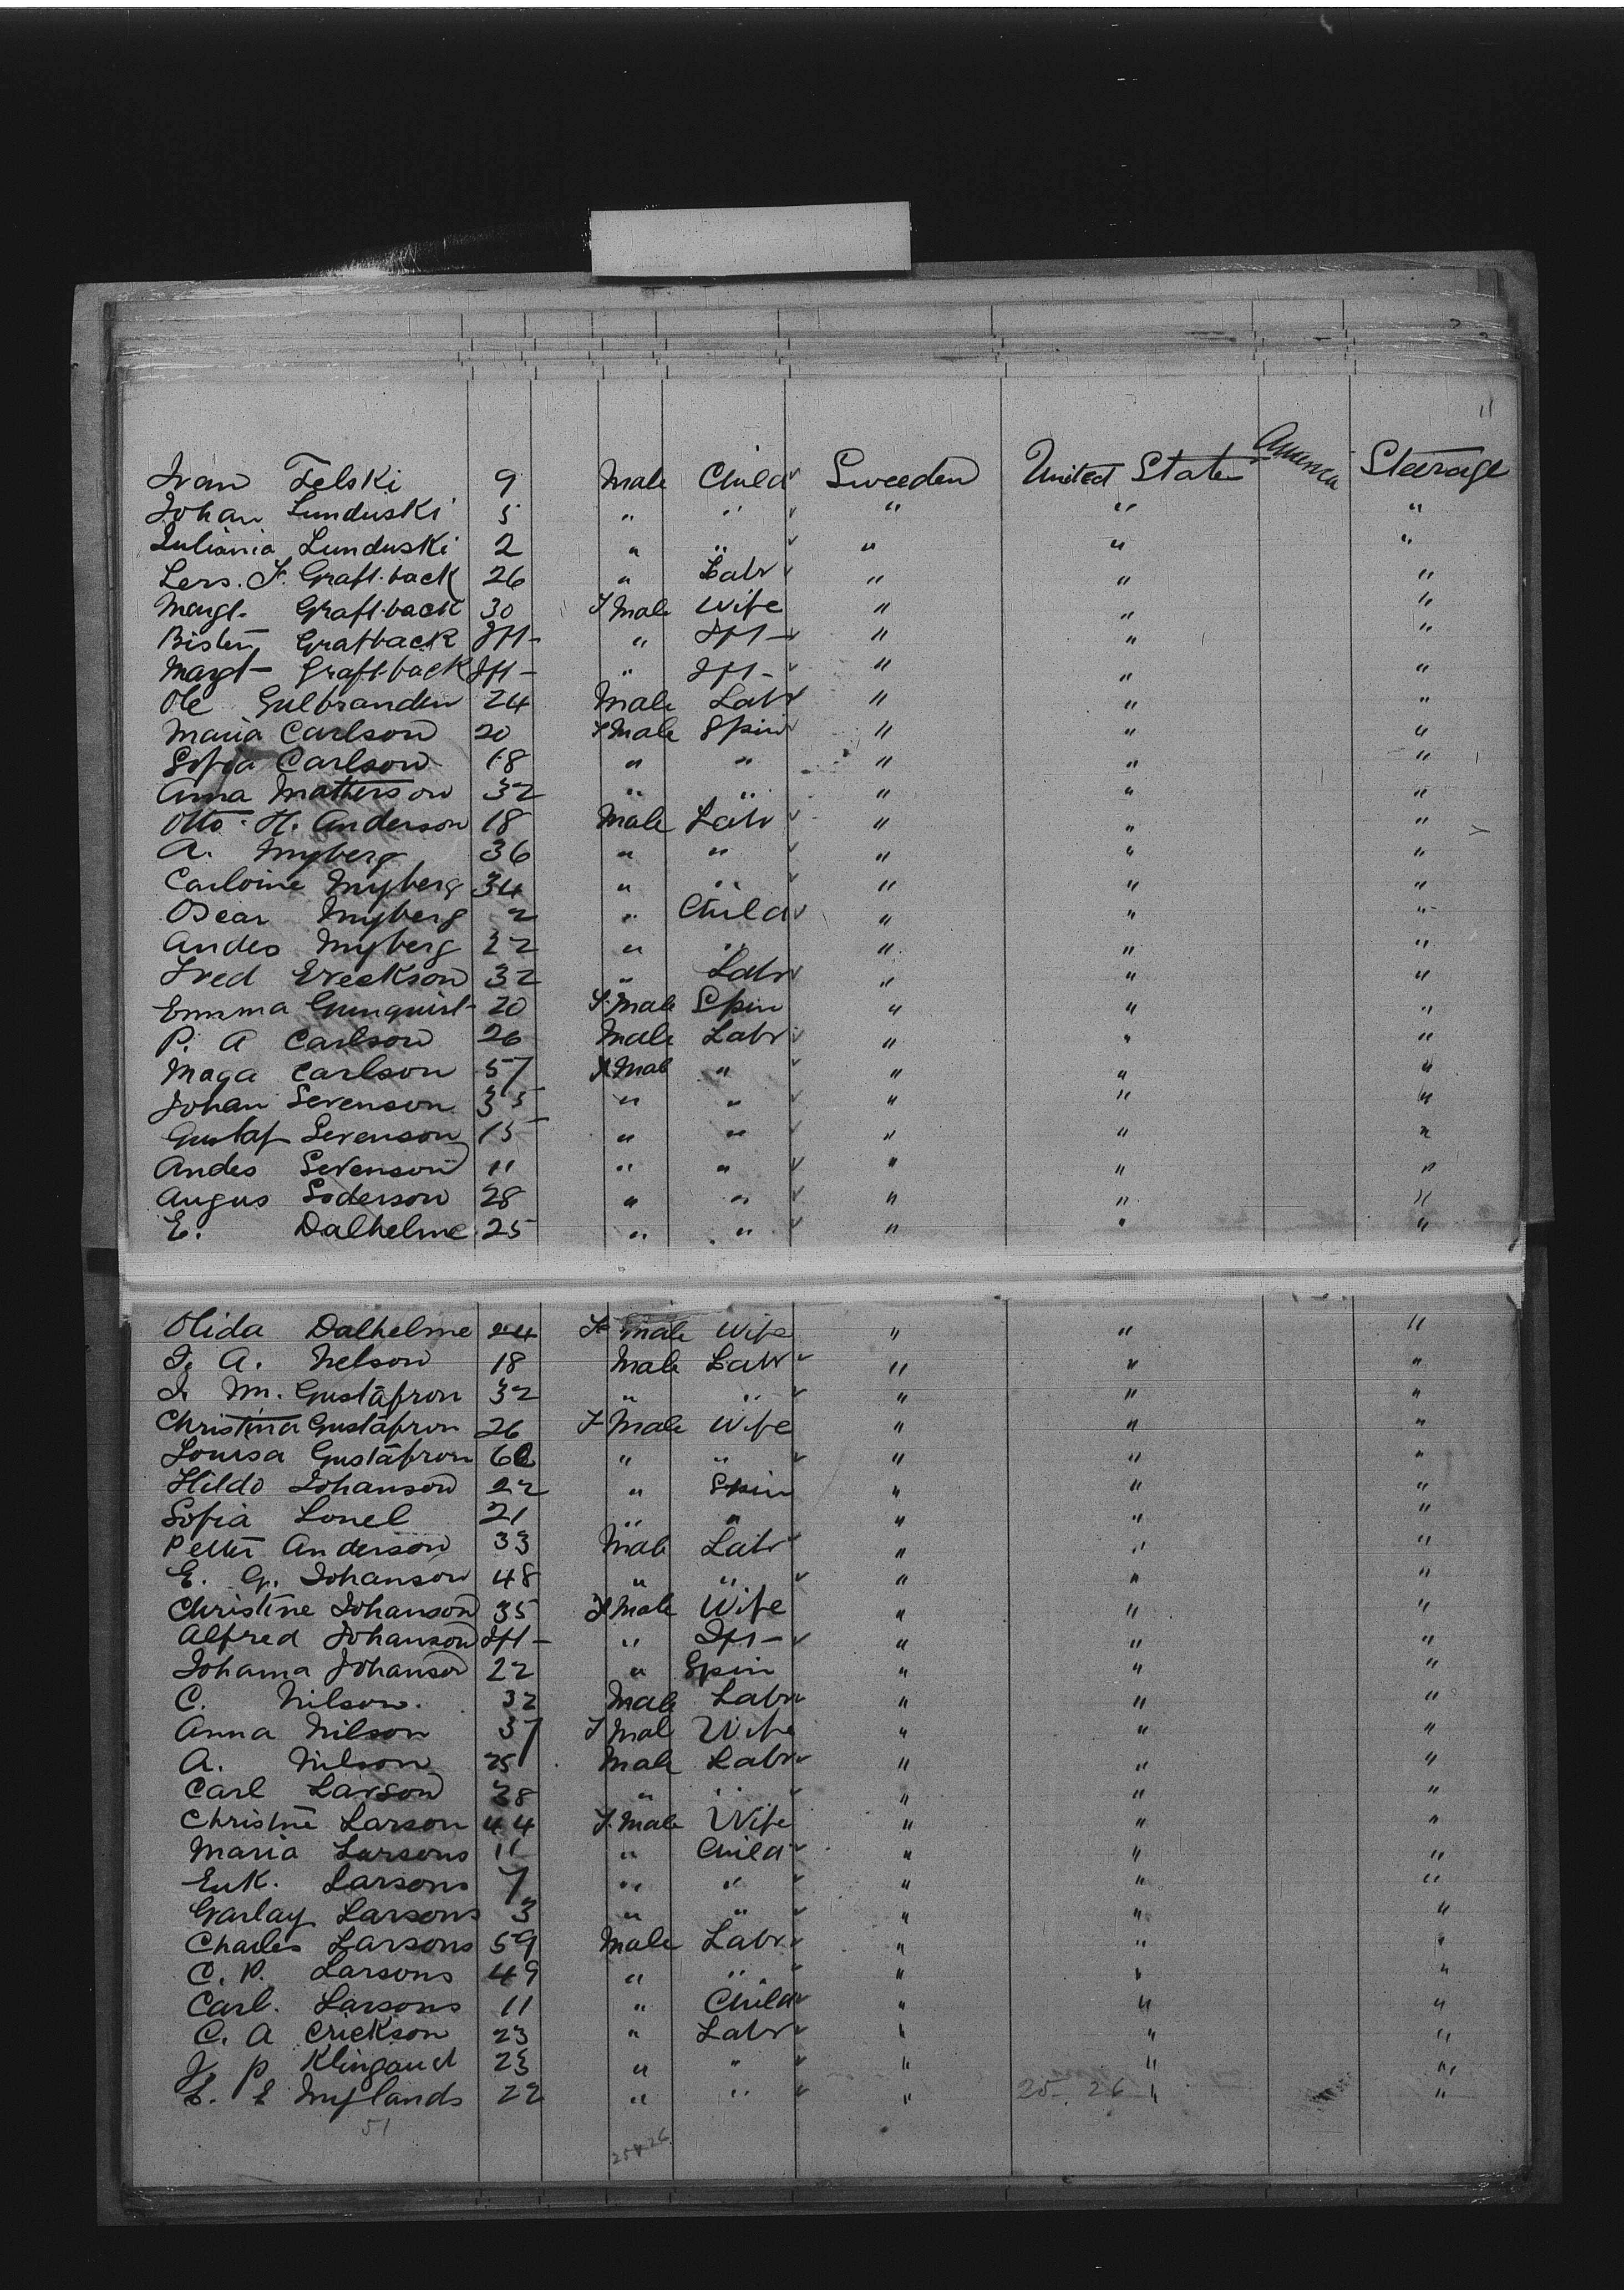 11
Ivan Felski 9 Male Child Sweeden United State America Steerage
Johan Lunduski 5 " " " " "
Juliania Lunduski 2 " " " " "
Lers. F. Graft-back 26 " Labr " " "
Margt. Graft-back 30 F Male Wife " " "
Bisten Gratback Ift- " Ift- " " "
Margt- Graft-back Ift- " Ift- " " "
Ole Gulbranden 24 Male Labr " " "
Maria Carlson 20 F Male Spin " " "
Sofia Carlson 18 " " " " "
Anna Matterson 32 " " " " "
Otto H. Anderson 18 Male Labr " " "
A. Myberg 36 " " " " "
Carloine Myberg 34 " " " " "
Oscar Myberg 2 " Child " " "
Andes Myberg 22 " " " " "
Fred Ereckson 32 " Labr " " "
Emma Gunquist 20 F. Male Spin " " "
P. A Carlson 26 Male Labr " " "
Maga Carlson 57 F Male " " " "
Johan Sevenson 35 " " " " "
Gustaf Sevenson 15 " " " " "
Andes Sevenson 11 " " " " "
Augus Soderson 28 " " " " "
E. Dalhelme 25 " " " " "
Olida Dalhelme 24 F male Wife " " "
I. A. Nelson 18 Male Labr " " "
I. M. Gustafron 32 " " " " "
Christina Gustafron 26 F Male Wife " " "
Lousa Gustafron 60 " " " " "
Hildo Johanson 22 " Spin " " "
Sofia Lonel 21 " " " " "
Petter Anderson 33 Male Labr " " "
E. G. Johanson 48 " " " " "
Christine Johanson 35 F Male Wife " " "
Alfred Johanson Ift- " Ift- " " "
Johama Johanson 22 " Spin " " "
C. Nilson. 32 Male Labr " " "
Anna Nilson 37 F Mal Wife " " "
A. Nilson 25 Male Labr " " "
Carl Larson 38 " " " " "
Christine Larson 44 F. Male Wife " " "
Maria Larsons 11 " Child " " "
Erik. Larsons 7 " " " " "
Garlay Larsons 3 " " " " "
Charles Larsons 59 Male Labr " " "
C. P. Larsons 49 " " " " "
Carl. Larsons 11 " Child " " "
C. A Erickson 23 " Labr " " "
J. P Klingand 23 " " " " "
E. E Mylands 22 " " " 25-26 " "
51
25+26